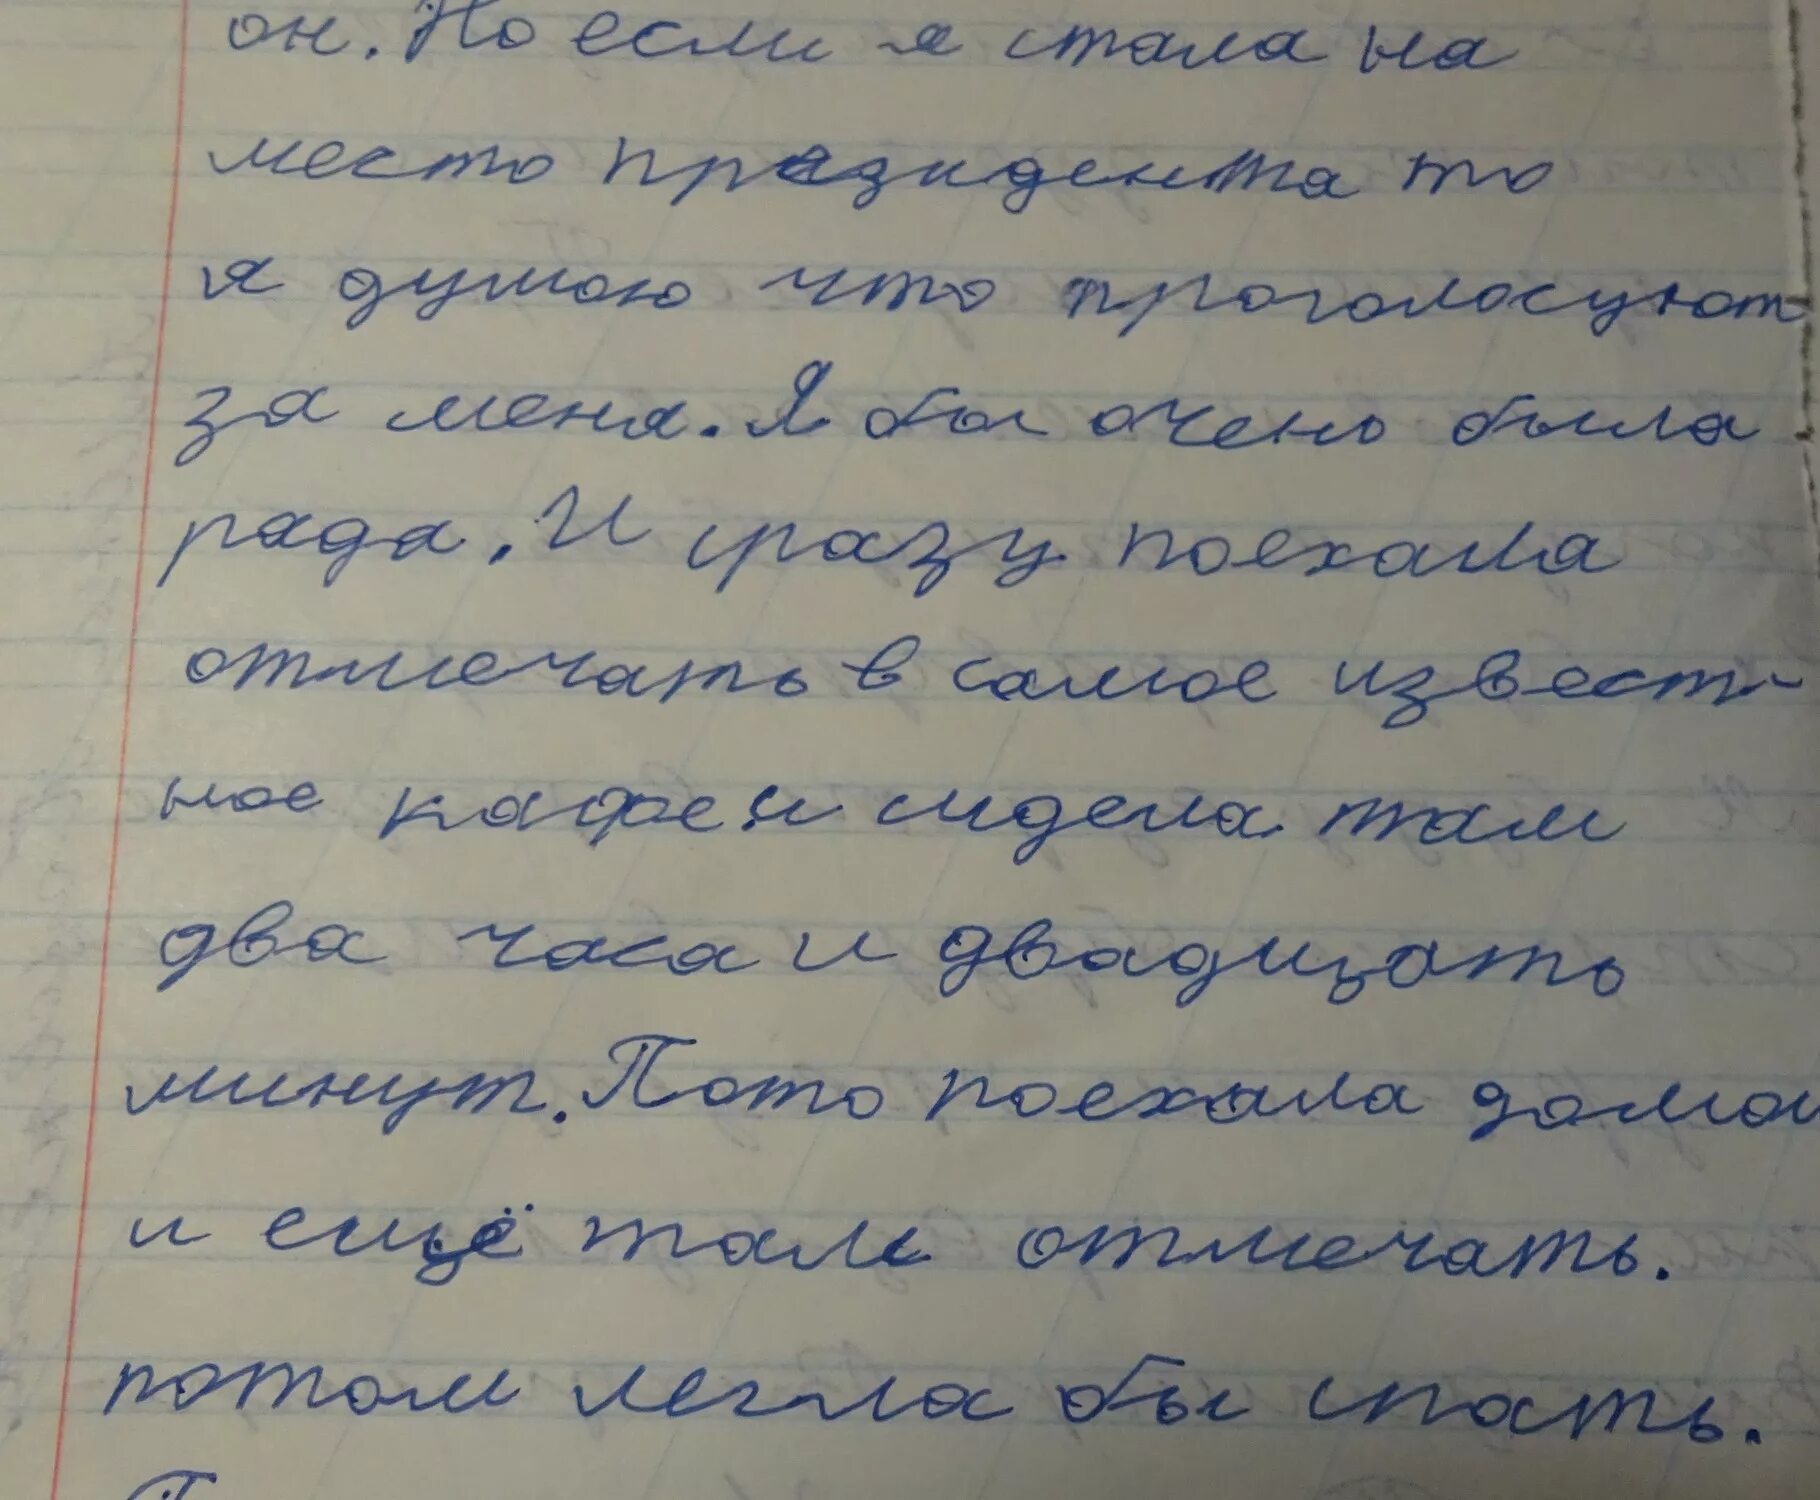 он. Но если я стала на
место президента то
я думаю что проголосуют
за меня. Я бы очень была
рада. И сразу поехала
отмечать в самое извест-
ное кафе и сидела там
два часа и двадцать
минут. Пото поехала домой
и ещё там отмечать.
потом легла бы спать.